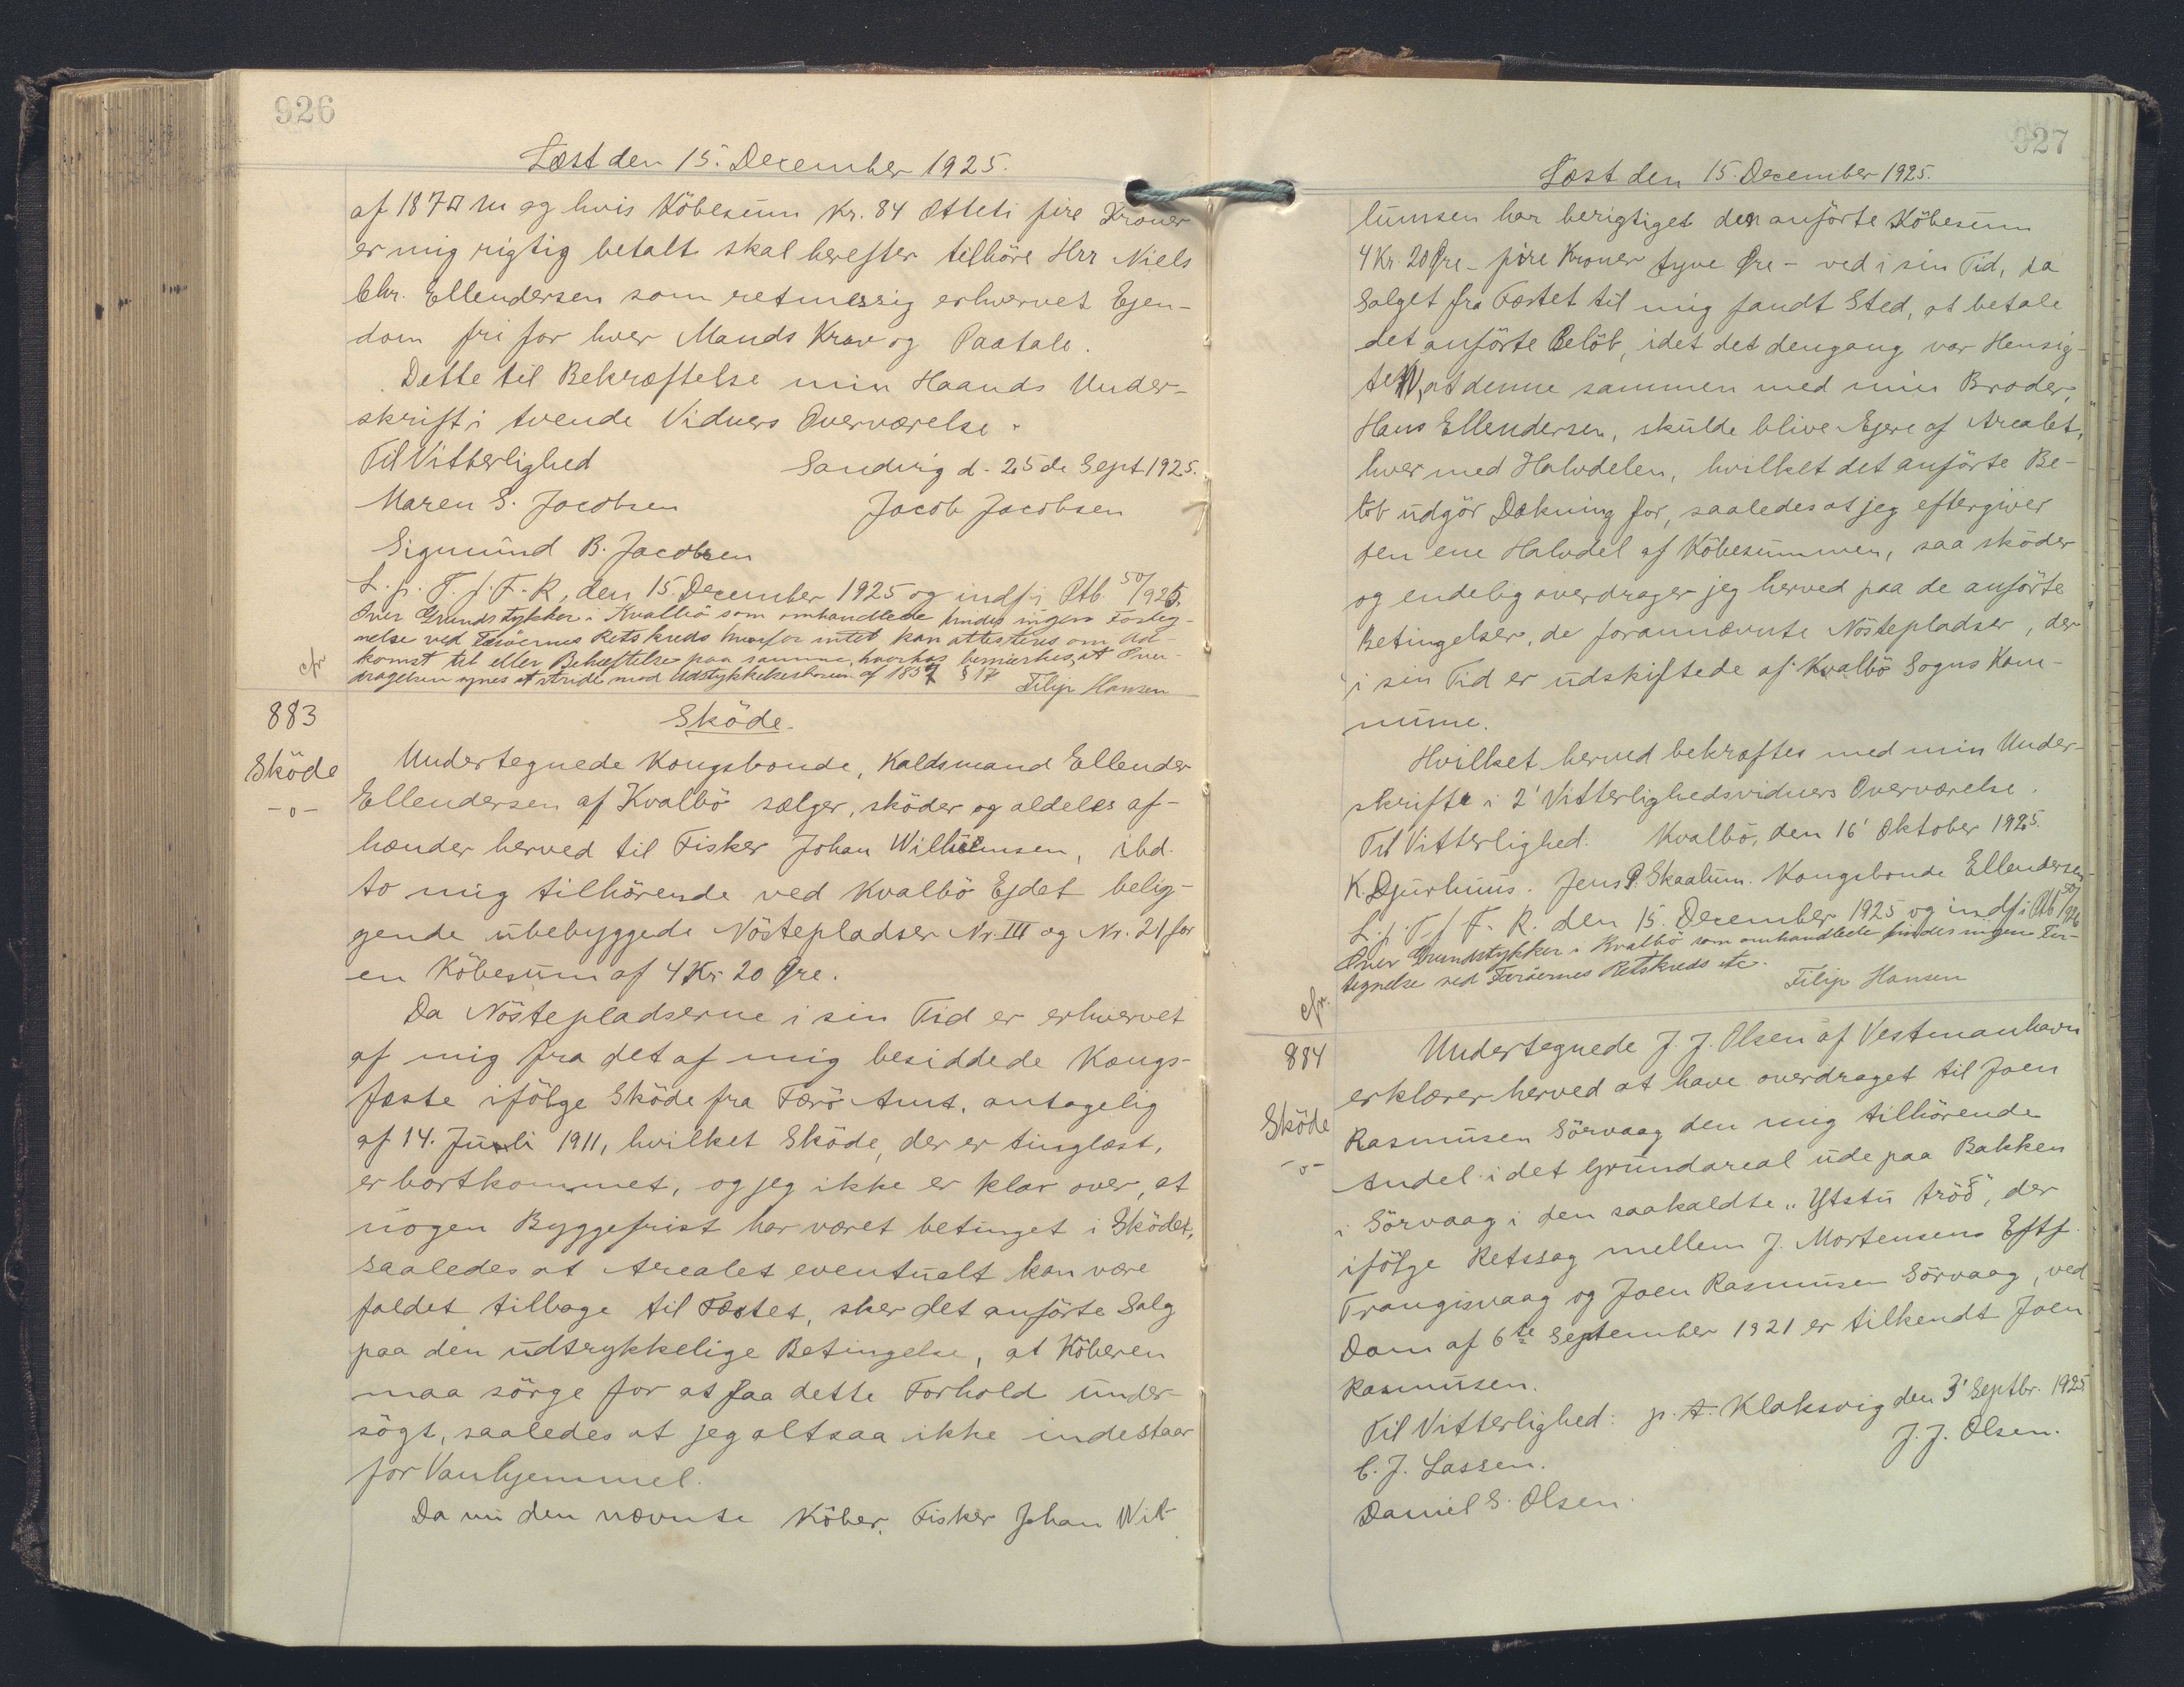 926
Læst den 15. December 1925.
af 187 □ m og hvis Köbesum Kr. 84 Otteti fire Kroner
er mig rigtig betalt skal herefter tilhöre Hrr Niels
Chr. Ellendersen som retmessig erhvervet Ejen-
dom fri for hver Mands Krav og Paatale.
Dette til Bekræftelse min Haands Under-
skrift i tvende Vidners Overværelse.
Til Vitterlighed Sandvig d. 25de Sept 1925.
Maren S. Jacobsen Jacob Jacobsen
Sigmund B. Jacobsen
L. p. T. f. F. R, den 15. December 1925 og indf i Ptb. 50/925.
Over Grundstykker i Kvalbö som omhandlede findes ingen Forteg-
nelse ved Færöernes Retskreds hvorfor intet kan attesteres om Ad-
komst til eller Behæftelse paa samme, hvorhos bemærkes, at Over-
dragelsen synes at stride mod Udstykkelsesloven af 1857 § 17 Filip Hansen
cfr.
883
Sköde
-o-
Sköde.
Undertegnede Kongsbonde, Kaldsmand Ellender
Ellendersen af Kvalbö sælger, sköder og aldeles af-
hænder herved til Fisker Johan Wilhelmsen, ibd.
to mig tilhörende ved Kvalbö Ejdet belig-
gende ubebyggede Nöstepladser Nr. III og Nr. 21 for
en Köbesum af 4 Kr 20 Øre.
Da Nöstepladserne i sin Tid er erhvervet
af mig fra det af mig besiddede Kongs-
fæste ifölge Sköde fra Færö Amt, antagelig
af 14. Juli 1911, hvilket Sköde, der er tinglæst,
er bortkommet, og jeg ikke er klar over, at
nogen Byggefrist har været betinget i Sködet,
saaledes at Arealet eventuelt kan være
faldet tilbage til Fæstet, sker det anförte Salg
paa den udtrykkelige Betingelse, at Köberen
maa sörge for at faa dette Forhold under-
sögt, saaledes at jeg altsaa ikke indestaar
for Vanhjemmel.
Da nu den nævnte Köber, Fisker Johan Wil-
927
Læst den 15. December 1925.
lumsen har berigtiget den anförte Köbesum
4 Kr 20 Øre - fire Kroner tyve Øre - ved i sin Tid, da
Salget fra Fæstet til mig fandt Sted, at betale
det anförte Belöb, idet det dengang var Hensig-
ten, at denne sammen med min Broder,
Hans Ellendersen, skulde blive Ejere af Arealet,
hver med Halvdelen, hvilket det anförte Be-
löb udgör Dækning for, saaledes at jeg eftergiver
den ene Halvdel af Köbesummen, saa sköder
og endelig overdrager jeg herved paa de anförte
Betingelser, de forannævnte Nöstepladser, der
i sin Tid er udskiftede af Kvalbö Sogns Kom-
mune.
Hvilket herved bekræftes med min Under-
skrift i 2' Vitterlighedsvidners Overværelse.
Til Vitterlighed. Kvalbö, den 16' Oktober 1925.
K. Djurhuus. Jens P. Skaalum. Kongsbonde Ellendersen
L. p. T. f. F. R. den 15. December 1925 og indf i Ptb 50/926
Over Grundstykker i Kvalbö som omhandlede findes ingen For-
tegnelse ved Færöernes Retskreds etc.
Filip Hansen
cfr.
884
Sköde
-o-
Undertegnede J. J. Olsen af Vestmanhavn
erklærer herved at have overdraget til Joen
Rasmusen Sörvaag den mig tilhörende
Andel i det Grundareal ude paa Bakken
i Sörvaag i den saakaldte "Ytstu tröð", der
ifölge Retssag mellem J. Mortensens Eftf.
Trangisvaag og Joen Rasmusen Sörvaag, ved
Dom af 6te September 1921 er tilkendt Joen
Rasmusen.
Til Vitterlighed: p. t. Klaksvig den 3' Septbr. 1925
J. J. Olsen.
C. J. Lassen.
Daniel S. Olsen.